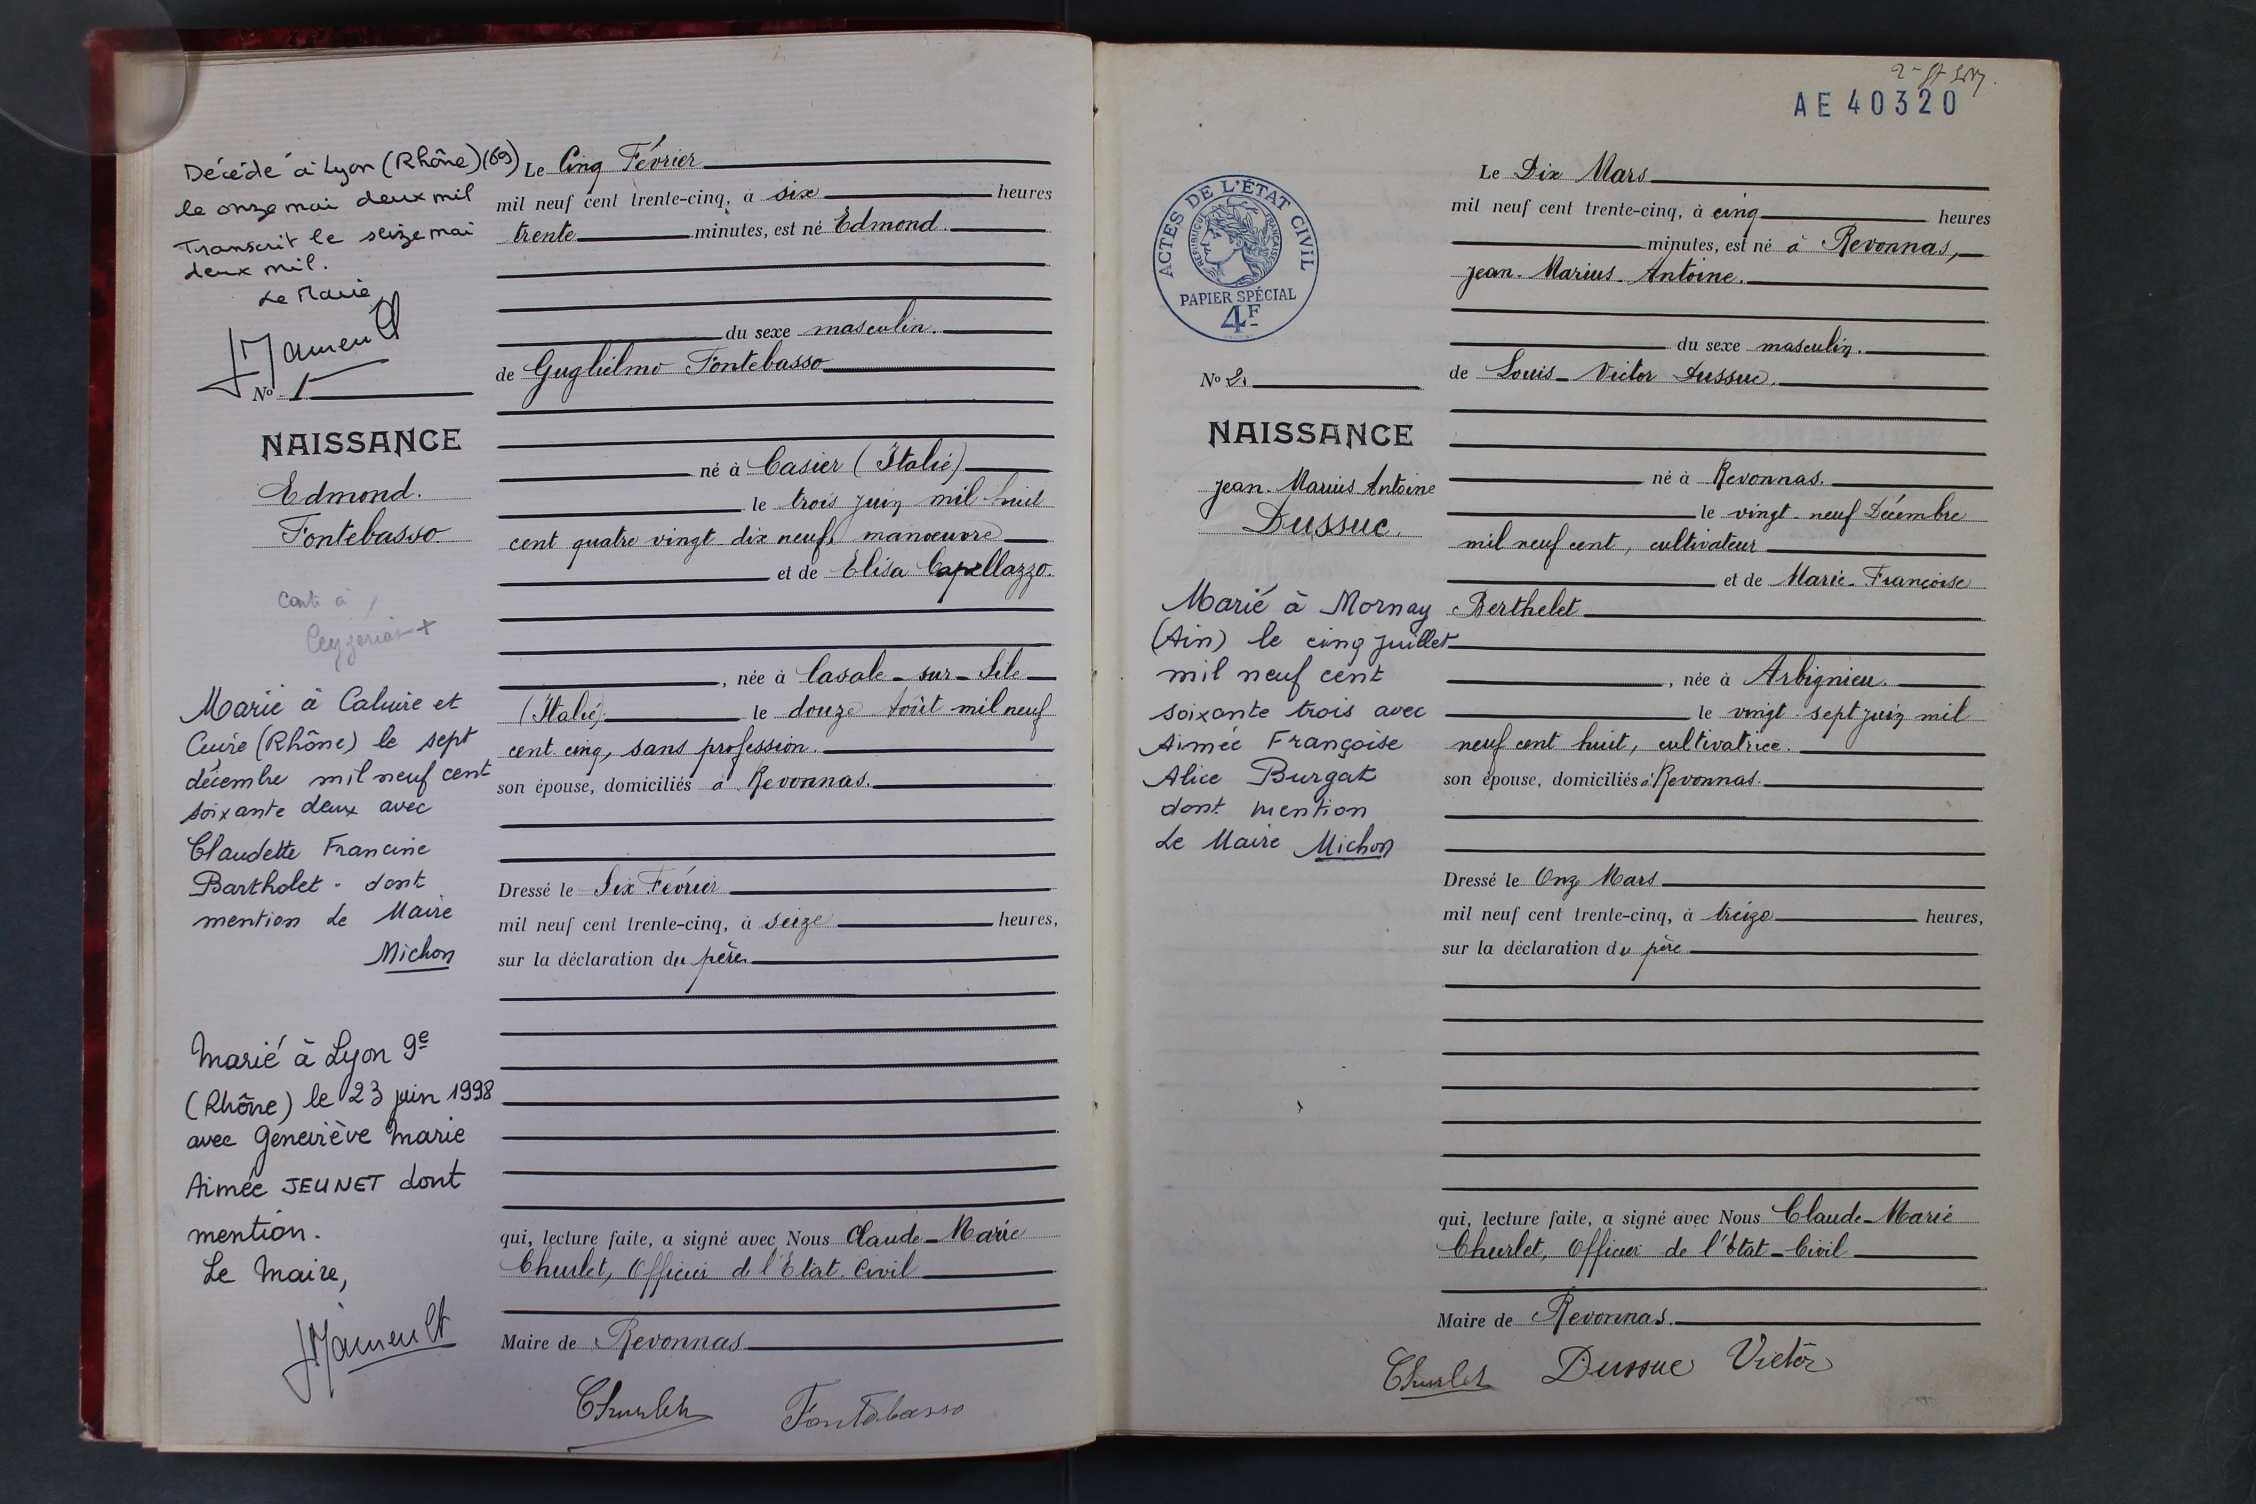 Décédé à Lyon (Rhône) (69)
le onze mai deux mil
Transcrit le seize mai
deux mil.
Le Maire
No 1
NAISSANCE
Edmond.
Fontebasso
Marié à Caluire et
Cuire (Rhône) le sept
décembre mil neuf cent
soixante deux avec
Claudette Francine
Bartholet - dont
mention Le Maire
Michon
Marié à Lyon 9e
(Rhône) le 23 juin 1998
avec Geneviève Marie
Aimée JEUNET dont
mention.
Le Maire,
Le Cinq Février
mil neuf cent trente-cinq, à six heures
trente minutes, est né Edmond.
du sexe masculin.
de Guglielmo Fontebasso
né à Casier (Italie)
le trois juin mil huit
cent quatre vingt dix neuf, manoeuvre
et de Elisa Capellazzo.
, née à Casale-sur-Sile
(Italie) le douze Août mil neuf
cent cinq, sans profession.
son épouse, domiciliés à Revonnas.
Dressé le Six Février
mil neuf cent trente-cinq, à seize heures,
sur la déclaration du père
qui, lecture faite, a signé avec Nous Claude-Marie
Churlet, Officier de l'Etat-Civil
Maire de Revonnas
Churlet Fontebasso
AE 40320
ACTES DE L'ÉTAT CIVIL
RÉPUBLIQUE FRANÇAISE
PAPIER SPÉCIAL
4F
No 2.
NAISSANCE
Jean-Marius Antoine
Dussuc.
Marié à Mornay
(Ain) le cinq juillet
mil neuf cent
soixante trois avec
Aimée Françoise
Alice Burgat
dont mention
Le Maire Michon
Le Dix Mars
mil neuf cent trente-cinq, à cinq heures
minutes, est né à Revonnas,
Jean-Marius-Antoine.
du sexe masculin.
de Louis-Victor Dussuc.
né à Revonnas.
le vingt-neuf Décembre
mil neuf cent, cultivateur
et de Marie-Françoise
Berthelet
, née à Arbignieu.
le vingt-sept juin mil
neuf cent huit, cultivatrice.
son épouse, domiciliés à Revonnas.
Dressé le Onze Mars
mil neuf cent trente-cinq, à treize heures,
sur la déclaration du père
qui, lecture faite, a signé avec Nous Claude-Marie
Churlet, Officier de l'Etat-Civil
Maire de Revonnas.
Churlet Dussuc Victor